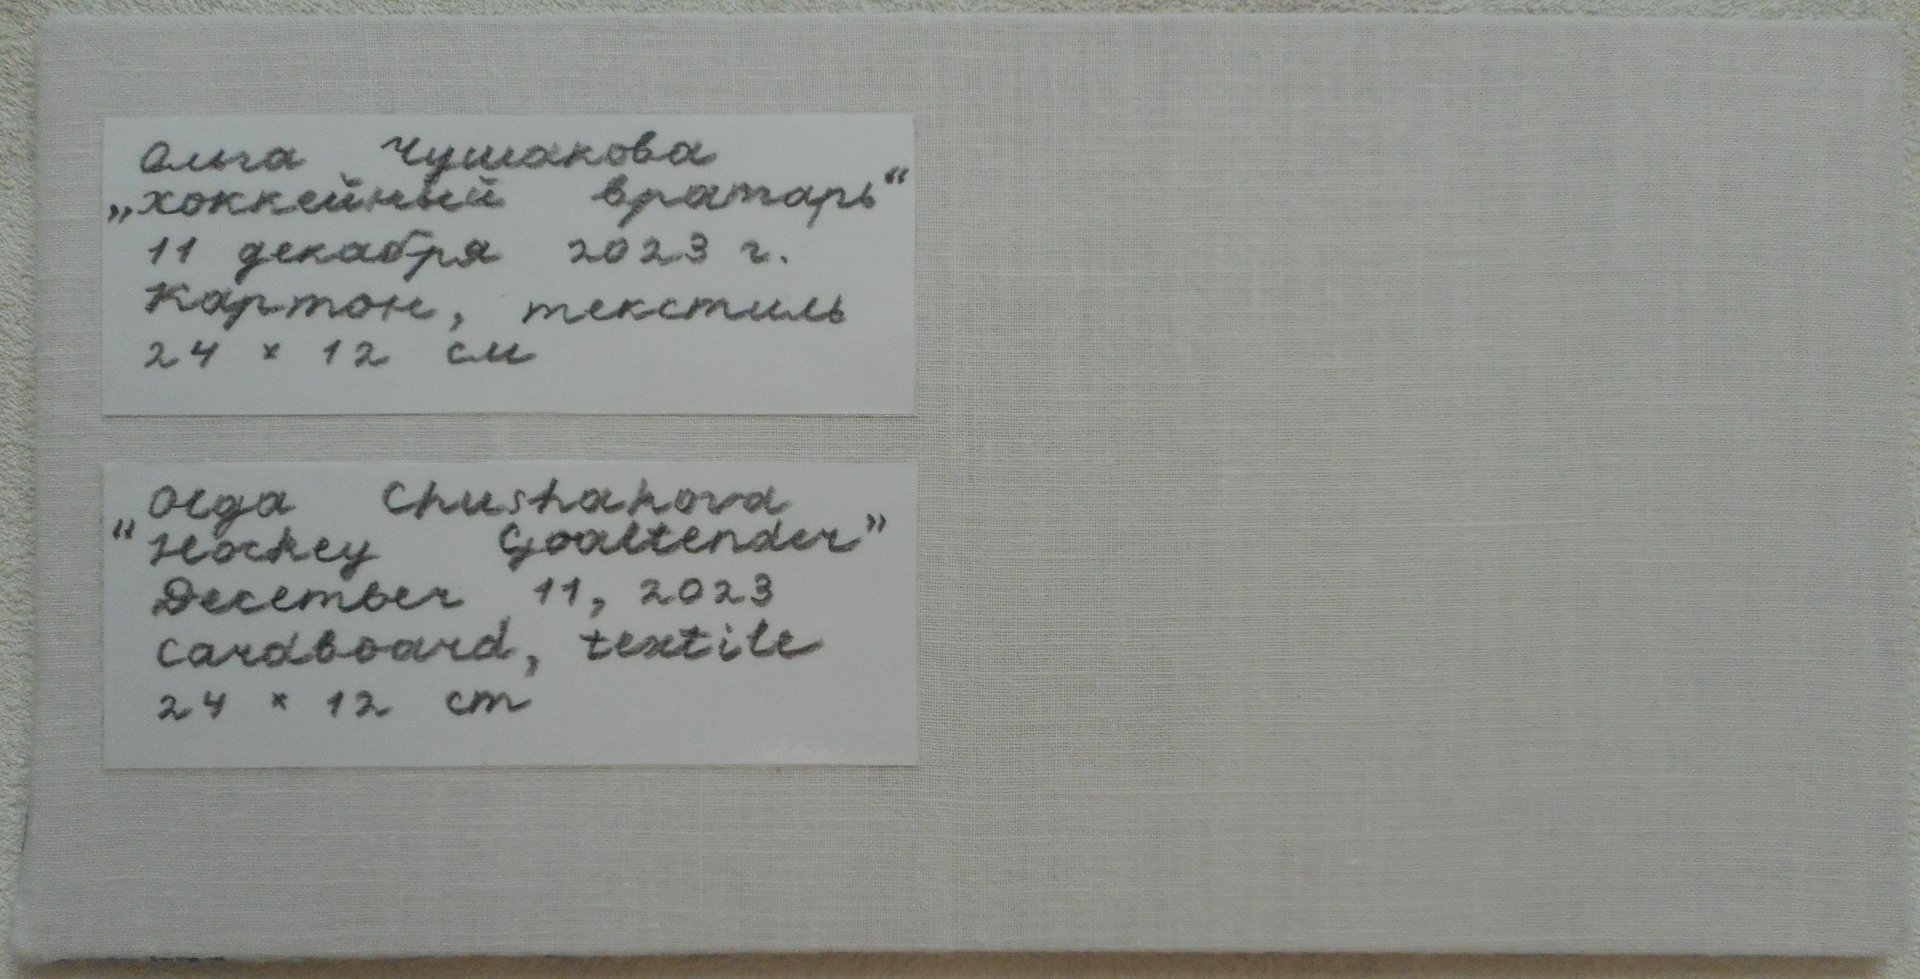 Ольга Чушакова
„Хоккейный вратарь“
11 декабря 2023 г.
Картон, текстиль
24 × 12 см
Olga Chushakova
“Hockey Goaltender”
December 11, 2023
Cardboard, textile
24 × 12 cm